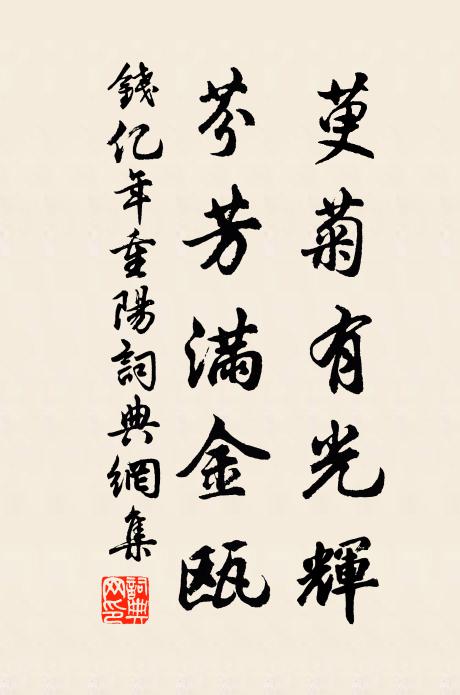 萸菊有光輝
芬芳滿金甌
錢亿年重陽詞典網集
詞典网印